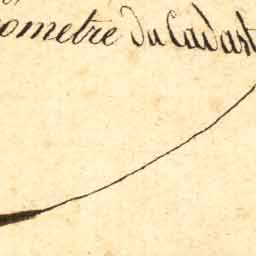 ometre du Cadast